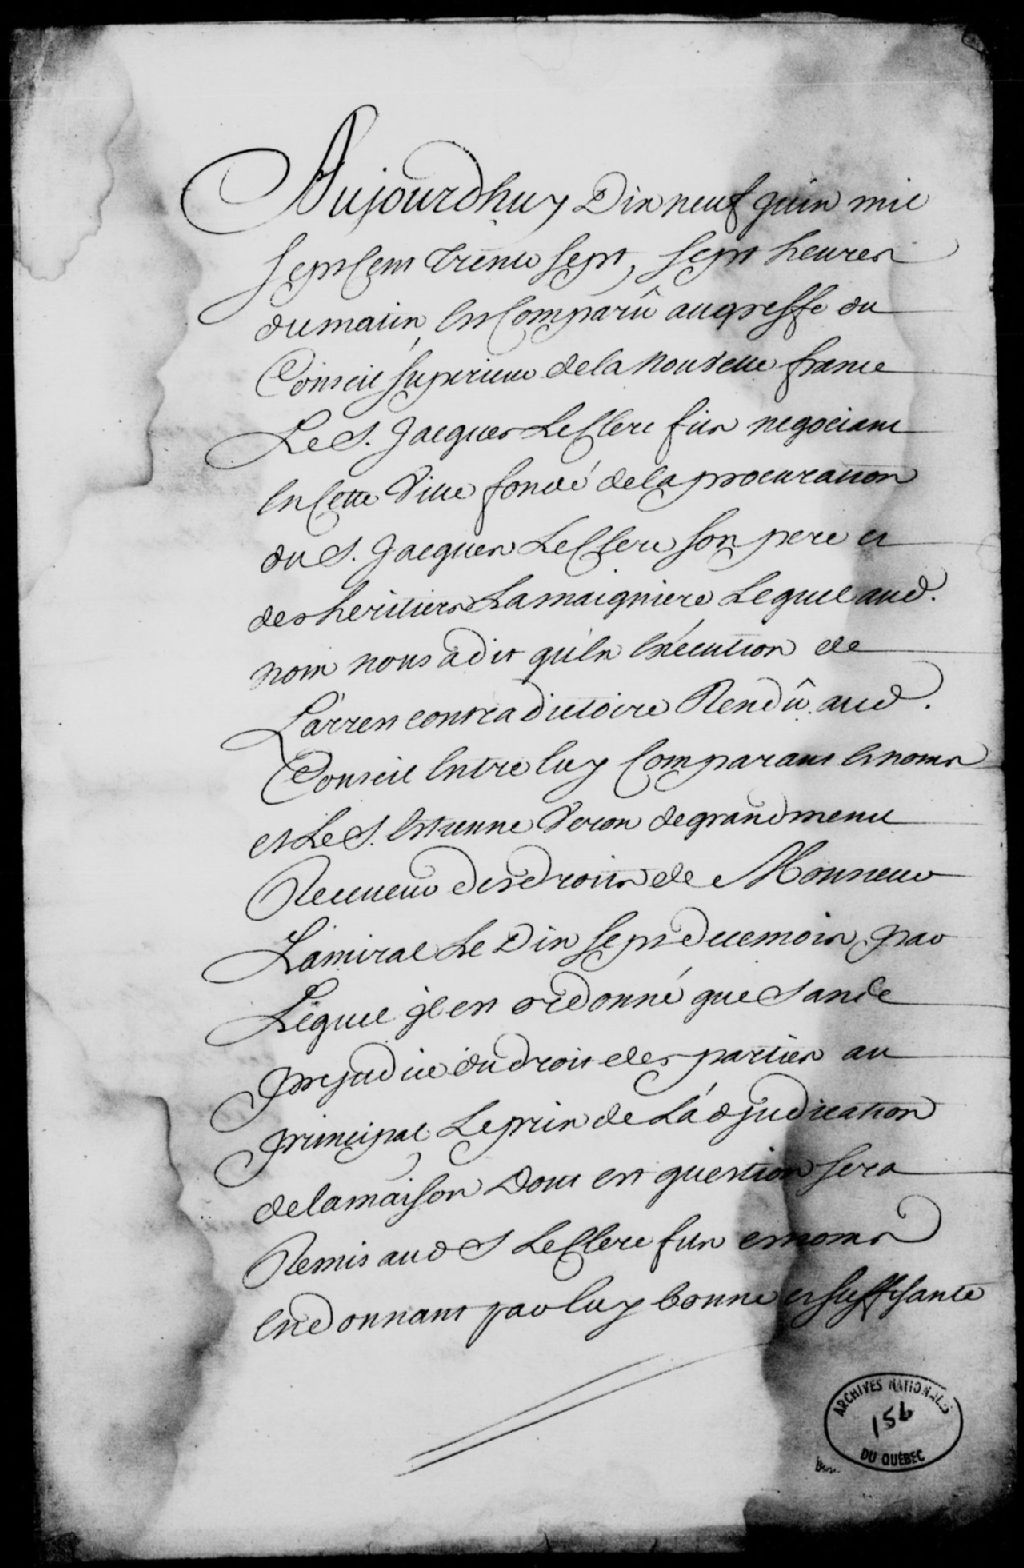 Aujourdhuy Dix neuf juin mil
sept Cent trente sept, sept heures
du matin, Est Comparû au greffe du
Conseil superieur de la Nouvelle france
Le S. Jacques LeClerc fils negociant
En Cette Ville fondé de la procuration
du S. Jacques LeClerc son pere et
des heritiers Lamaigniere Lequel aud.
nom nous a dit qu'En Execution de
L'arrest contradictoire Rendû aud.
Conseil Entre luy Comparant Esnoms
et Le S. Estienne Veron de grandmenil
Receveur des droits de Monsieur
L'amiral Le Dix sept de ce mois, par
Lequel jl est ordonné que Sans le
prejudice du droit des parties au
principal Le prix de L'adjudication
de la maison Dont est question sera
Remis aud S LeClerc fils esnoms
En donnant par luy bonne et suffisante
ARCHIVES NATIONALES
156
DU QUÉBEC